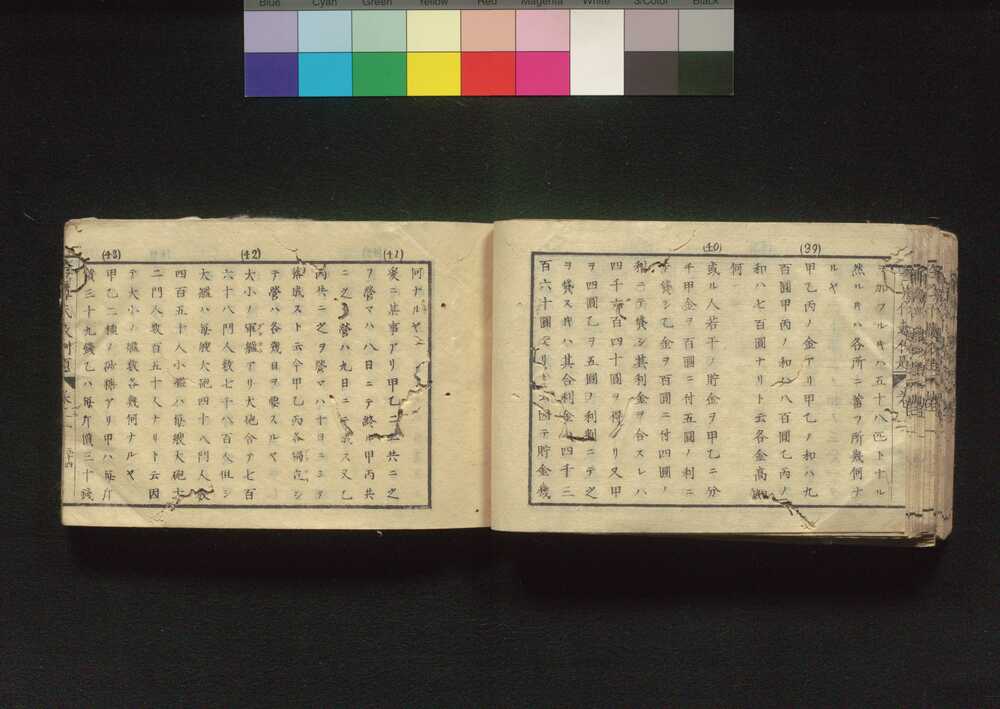 Blue Cyan Green Yellow Red Magenta White 3/Color Black
加フル𪜈ハ五十八匹ト十ル
然ル𪜈ハ各所ニ蓄ヲ所幾何ナ
ルヤ
(39)
甲乙丙ノ金アリ甲乙ノ和ハ九
百圓甲丙ノ和ハ八百圓乙丙ノ
和ハ七百圓ナリト云各金高
何
(40)
或ル人若干ノ貯金ヲ甲乙ニ分
チ甲金ヲ百圓ニ付五圓ノ利ニ
貸シ乙金ヲ百圓ニ付四圓ノ
利ニテ貸シ其利金ヲ合スレハ
四千六百四十圓ヲ得ルリ又甲
ヲ四圓乙ヲ五圓ノ利ニテ之
ヲ貸スキハ其合利金ハ四千三
百六十圓ナリト云因テ貯金幾
何ナルヤ
(41)
爰ニ某事アリ甲乙共ニ之
ヲ營マハ八日ニテ終ル甲丙共
ニ之ヲ營ハ九日ニ ス又乙
丙共ニ之ヲ營マハ十日ニシテ
落成スト云今甲乙丙各獨立シ
テ營ハ各幾日ヲ要スルヤ
(42)
大小ノ軍艦アリ大砲合テ七百
六十八門人数七千八百人但シ
大艦ハ毎艘大砲四十八門人数
四百五十人小艦ハ毎艘大砲大
二門人数百五十人ナリト云因
テ大小ノ艦数各幾何ナルヤ
(43)
甲乙二種ノ砂糖アリ甲ハ毎斤
價三十九錢乙ハ毎斤價三十錢